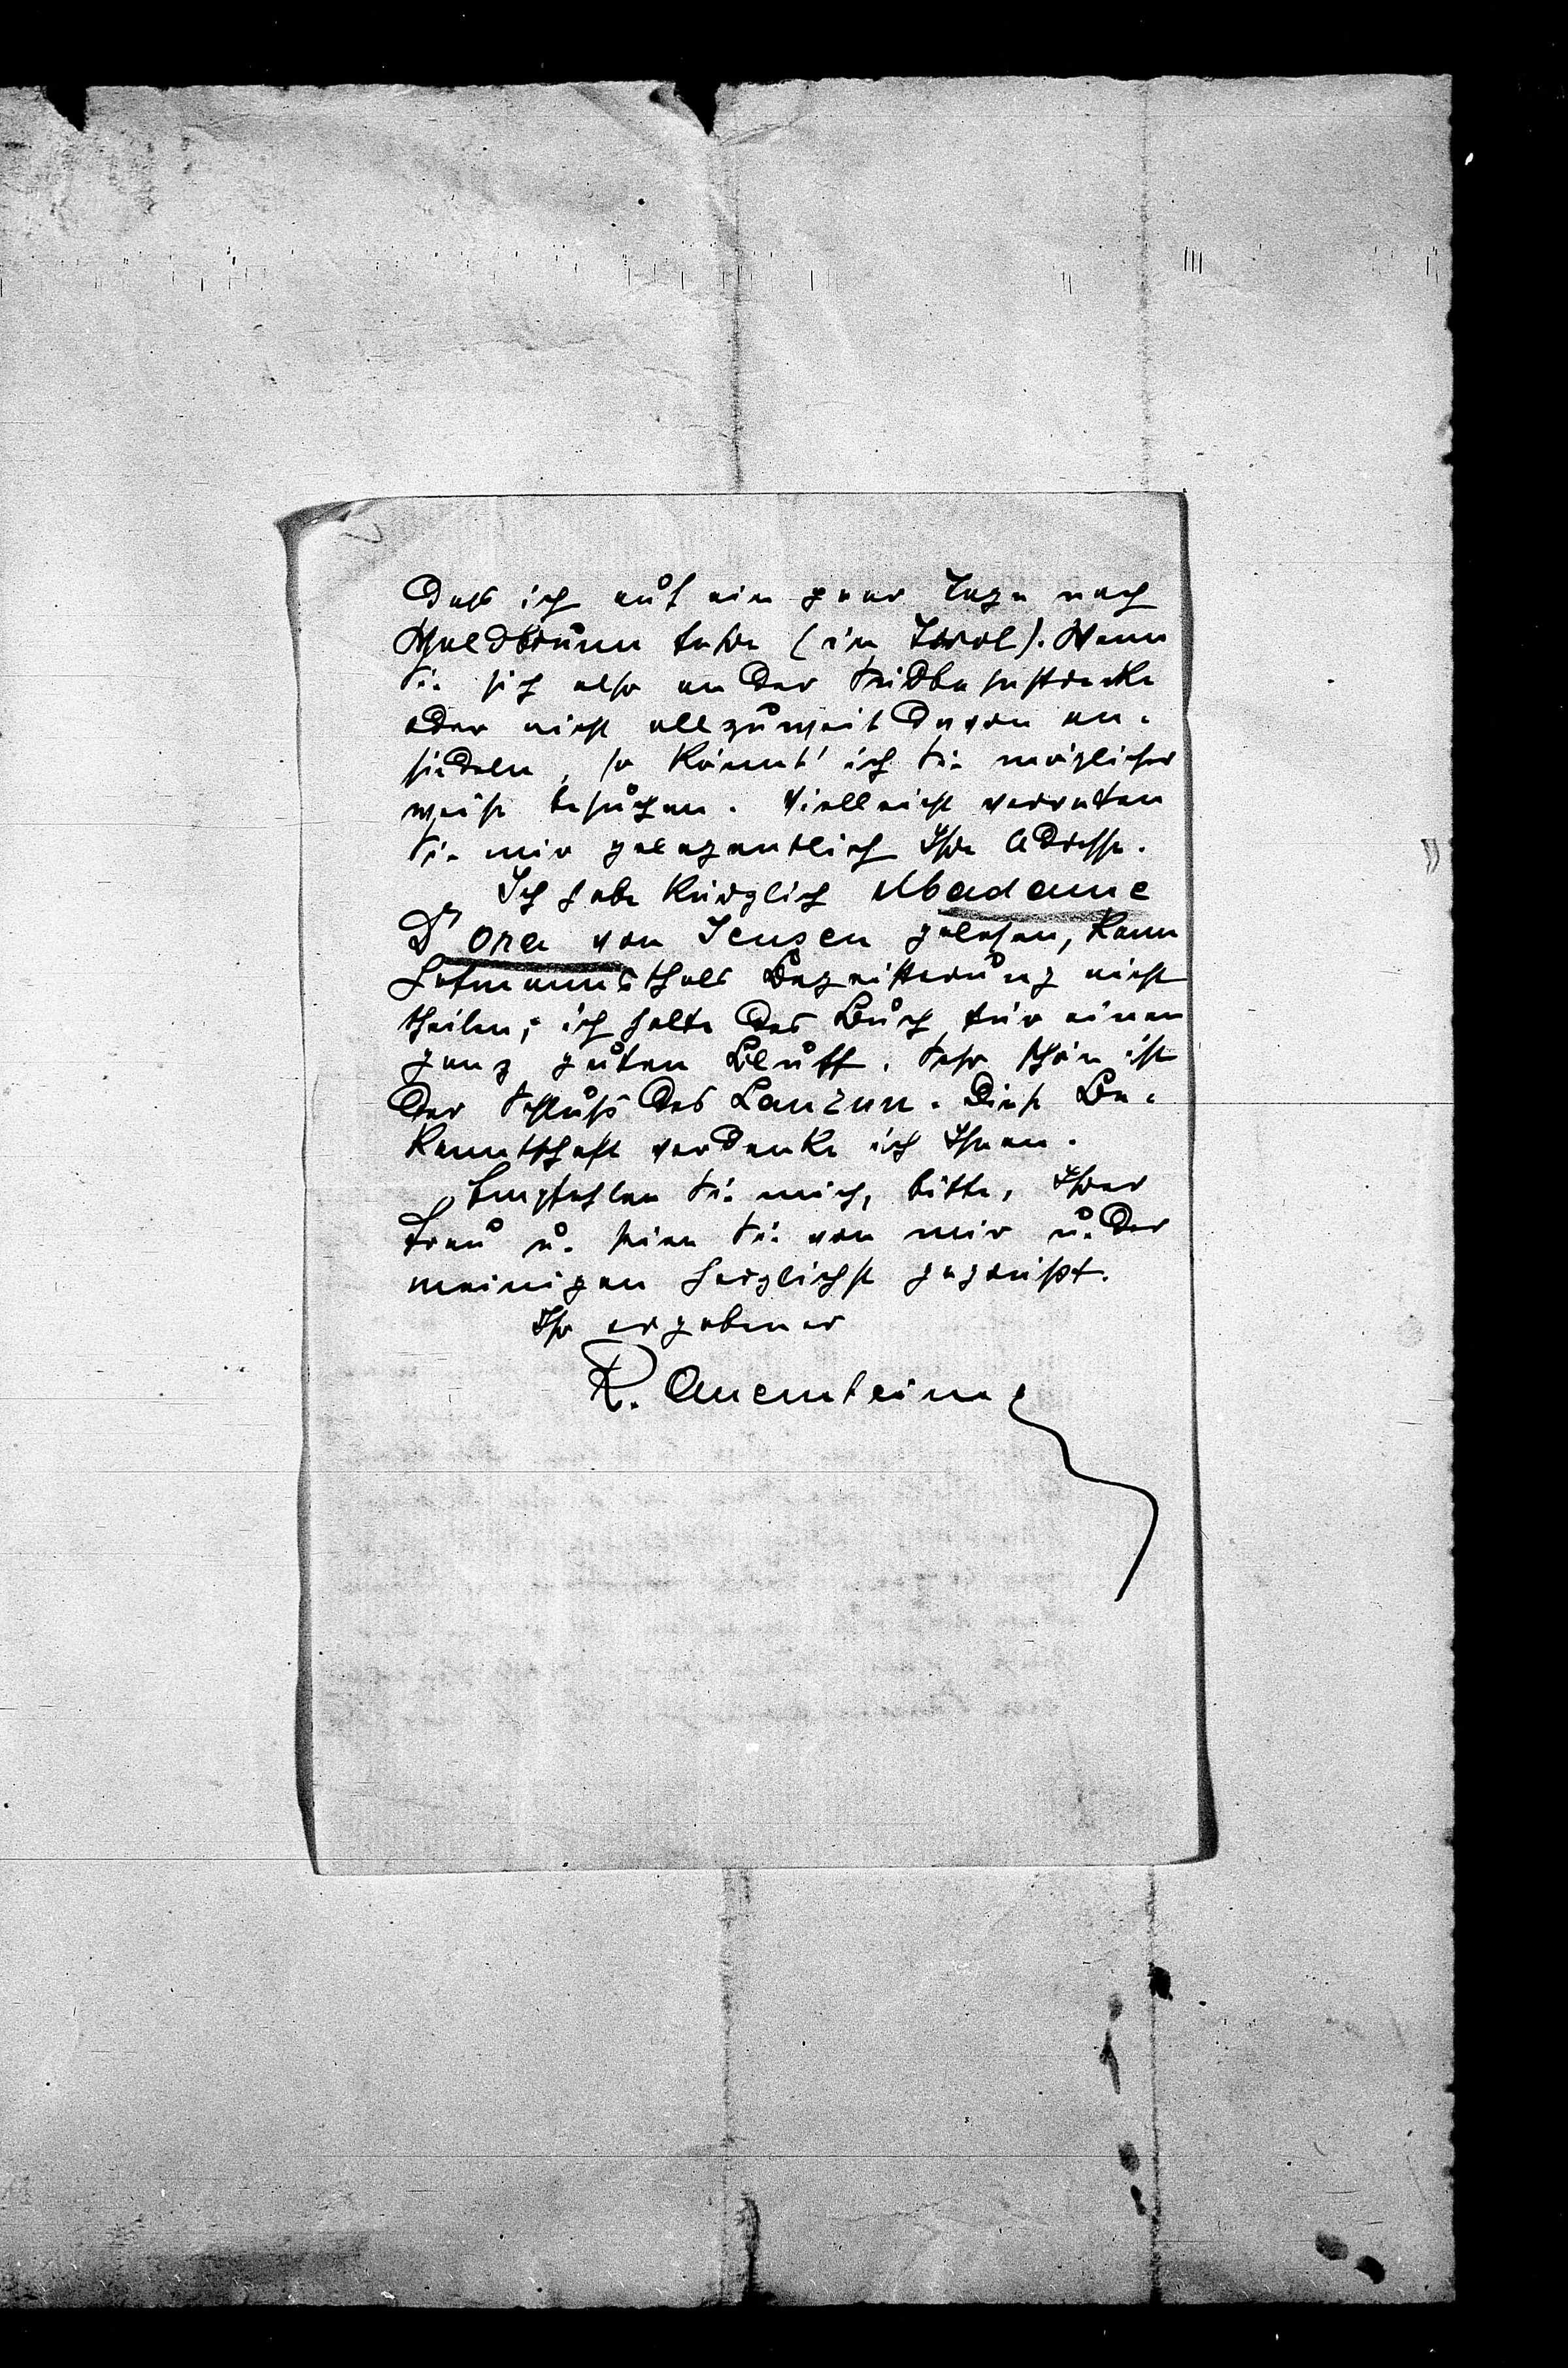 dass ich auf ein paar Tage nach
Waldbrunn fahre (in Tirol). Wenn
Sie sich also an der Südbahnstrecke
oder nicht allzuweit davon an-
siedeln, so könnt' ich Sie möglicher
weise besuchen. Vielleicht verraten
Sie mir gelegentlich Ihre Adresse.
Ich habe kürzlich Madame
D'Ora von Jensen gelesen, kann
Hofmannsthals Begeisterung nicht
theilen; ich halte das Buch für einen
ganz guten Bluff. Sehr schön ist
der Schluß des Lauzun. Diese Be-
kanntschaft verdanke ich Ihnen.
Empfehlen Sie mich, bitte, Ihrer
Frau u. seien Sie von mir u. der
meinigen herzlichst gegrüßt.
Ihr ergebener
R. Auernheimer